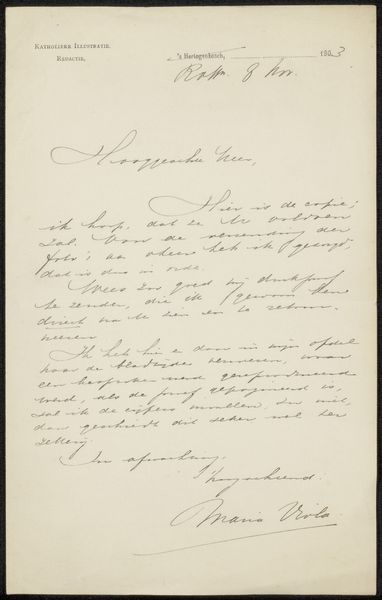 KATHOLIEKE ILLUSTRATIE.
REDACTIE.
's Hertogenbosch, 1903
8 Nov.
Hooggeachte Heer,
Hier is de copie;
ik hoop, dat ze U voldoen
zal. Van de verzending der
foto's aan heb ik gezegd.
dat is dus in orde.
Wees zoo goed mij drukproef
te zenden, die ik gewoon ben
direct na te zien en te retour-
neeren.
Ik heb hier e daar in mijn opstel
naar de bladzijde verwezen, waar
een besproken werd gereproduceerd
werd, als de proef gepagineerd is,
zal ik de cijfers invullen, zoo niet,
dan geschiedt dit zeker wel ter
zetterij.
In afwachting,
Hoogachtend
Maria Viola